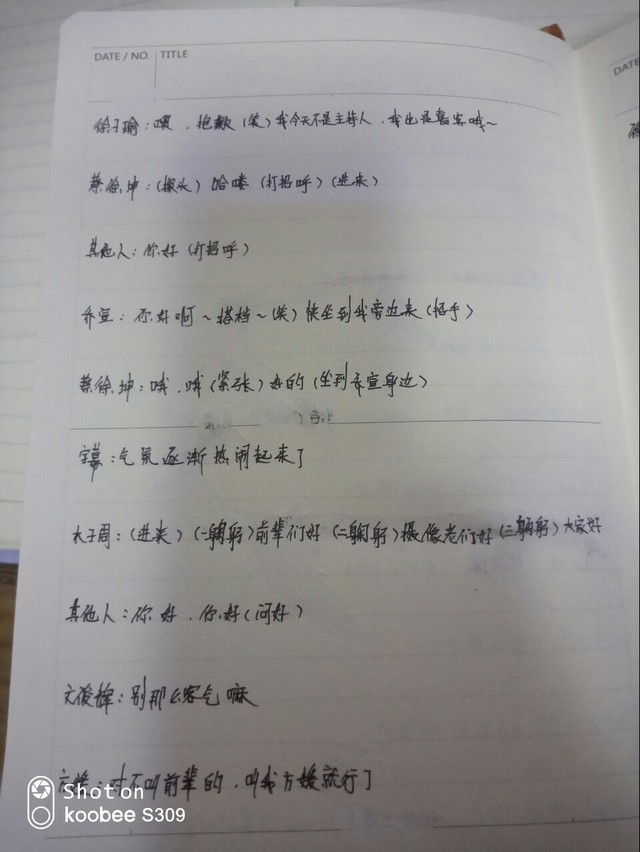 DATE / NO. TITLE
DATE
徐子瑜：嗯，抱歉（笑）我今天不是主持人，我也是嘉宾哦~
蔡徐坤：（探头）哈喽（打招呼）（进来）
其他人：你好（打招呼）
乔宣：你好啊~搭档~（笑）快坐到我旁边来（招手）
蔡徐坤：哦，哦（紧张）好的（坐到乔宣身边）
字幕：气氛逐渐热闹起来了
木子周：（进来）（一鞠躬）前辈们好（二鞠躬）摄像老们好（三鞠躬）大家好
其他人：你好，你好（问好）
文俊辉：别那么客气嘛
方媛：对不叫前辈的，叫我方媛就行了
Shot on
koobee S309